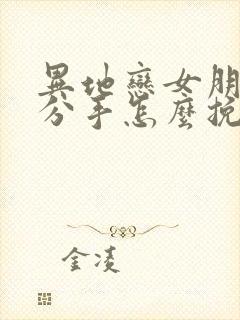 異地戀女朋
分手怎麼挽
金凌